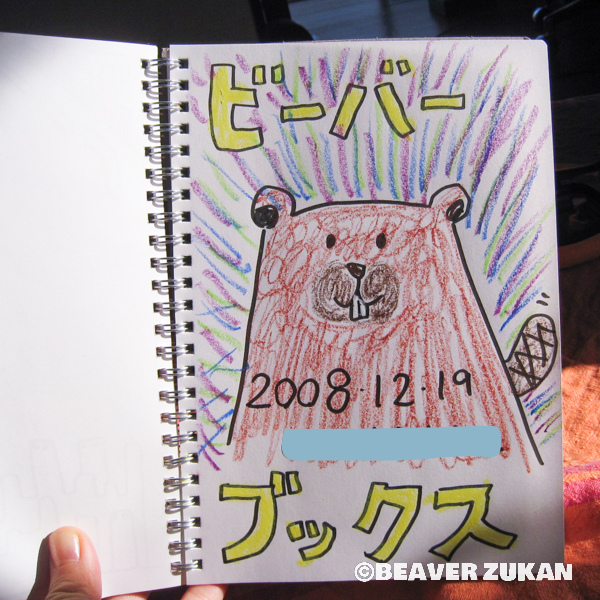 ビーバー
2008・12・19
ブックス
©BEAVER ZUKAN